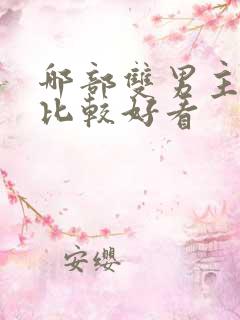 那部雙男主
比較好看
安纓